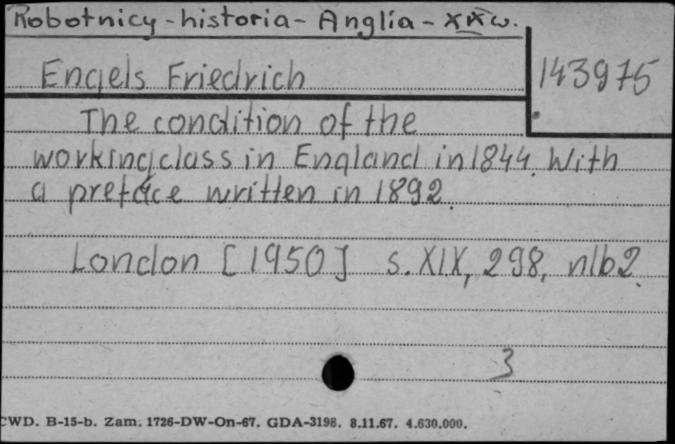 Robotnicy - historia - Anglia - XIX w.
Engels Friedrich
143975
The condition of the
working class in England in 1844. With
a preface written in 1892.
London [1950] s. XIX, 298, nlb 2.
3
CWD. B-15-b. Zam. 1726-DW-On-67. GDA-3198. 8.11.67. 4.630.000.